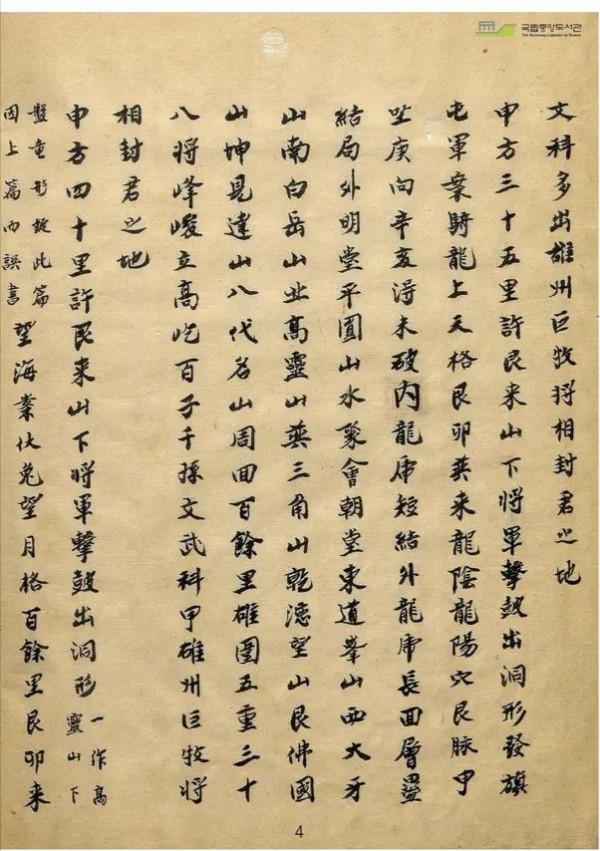 국립중앙도서관
The National Library of Korea
文科多出雄州巨牧將相封君之地
申方三十五里許艮來山下將軍擊鼓出洞形發旗
屯軍案騎龍上天格艮卯巽來龍陰龍陽穴艮脉甲
坐庚向辛亥得未破內龍虎短結外龍虎長面層疊
結局外明堂平圓山水聚會朝堂東道峯山西大牙
山南白岳山北高靈山巽三角山乾德望山艮佛國
山坤見達山八代名山周回百餘里雄圍五重三十
八將峰峻立高屹百子千孫文武科甲雄州巨牧將
相封君之地
申方四十里許艮來山下將軍擊鼓出洞形一作高
靈山下
盤龜形從此篇
因上篇而誤書望海案伏兔望月格百餘里艮卯來
4